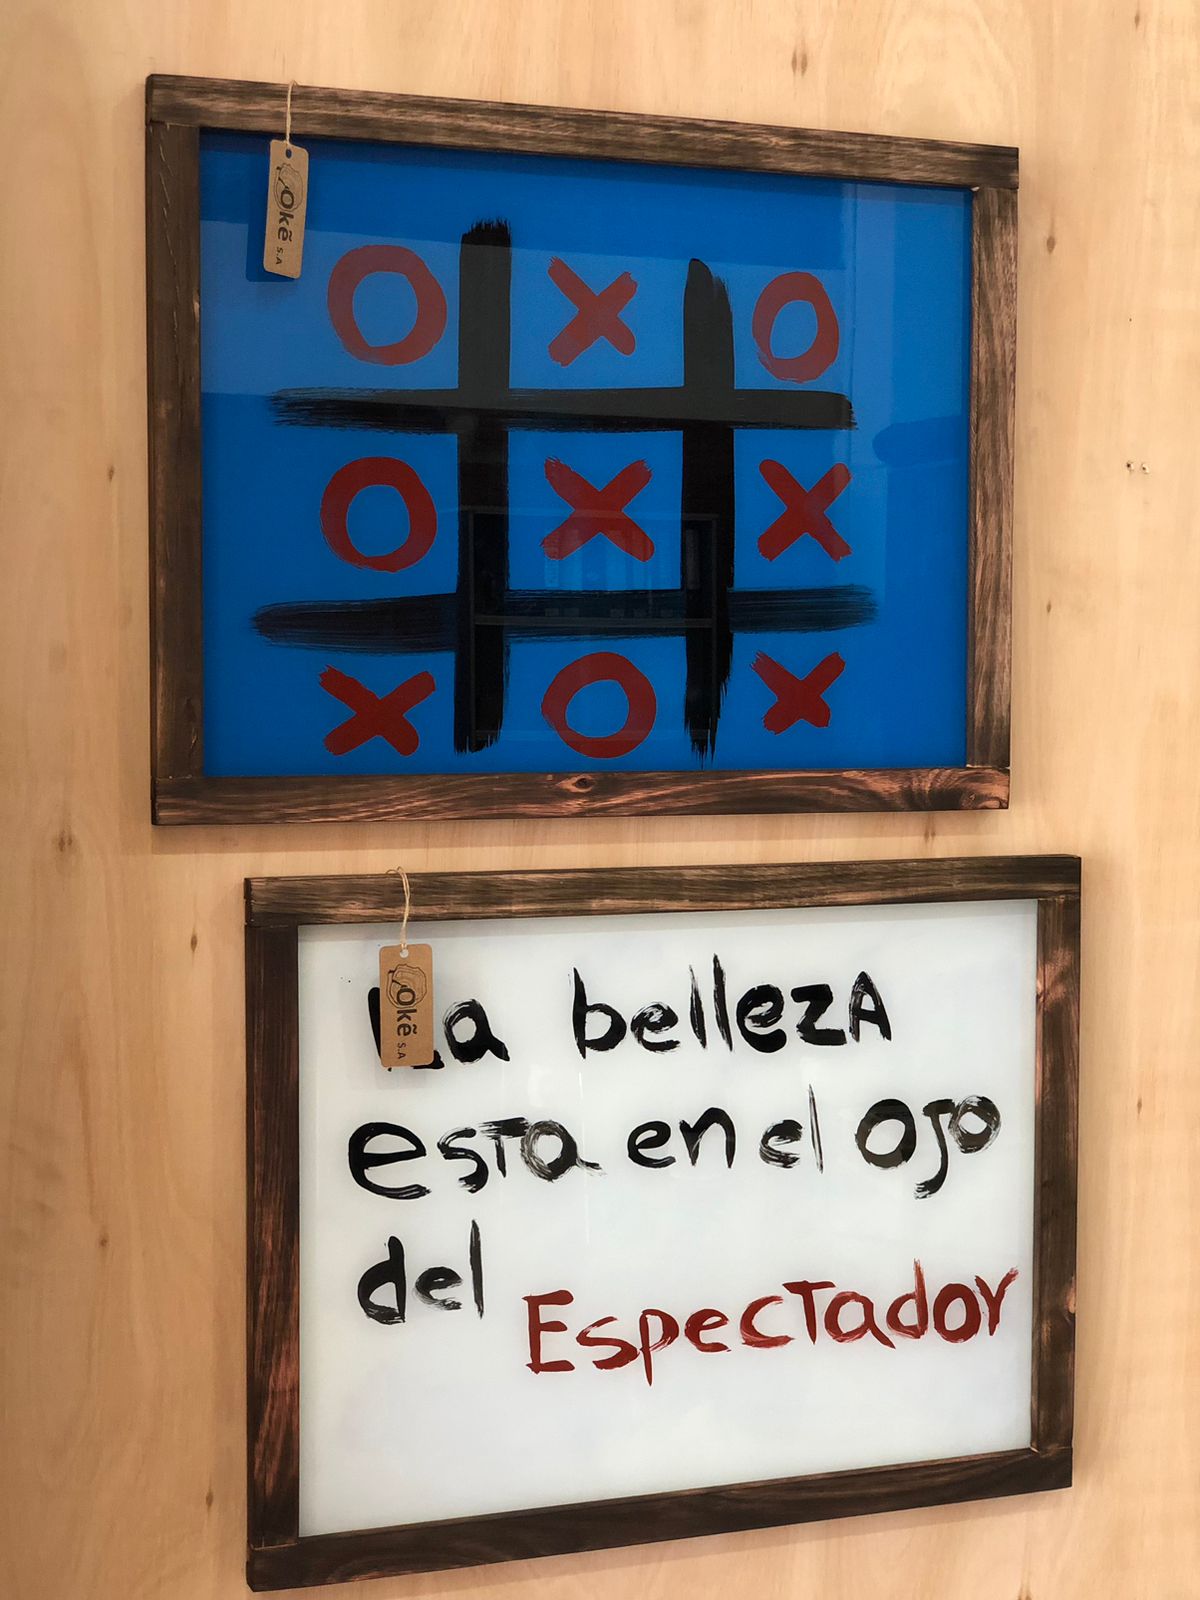 Okē S.A
O X O
O X X
X O X
Okē S.A
La bellezA
esta en el ojo
del
EspecTador